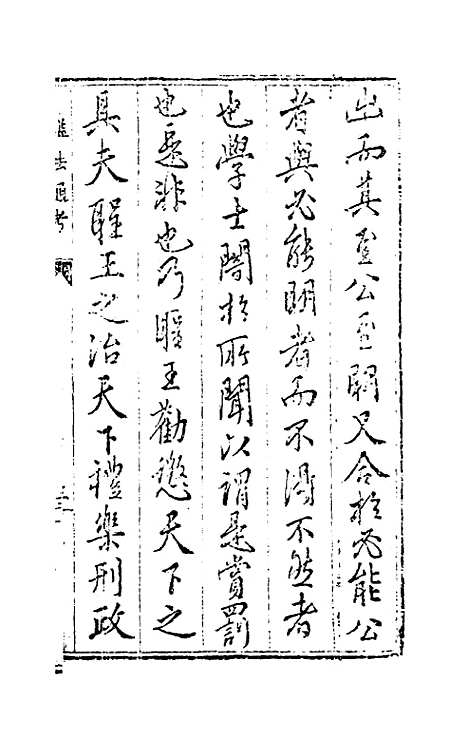 出而其至公至閎又合於必能公
者與必能明者而不得不然者
也學士闇於所聞以謂是賞罰
也是非也乃聖王勸懲天下之
具夫聖王之治天下禮樂刑政
謚法通考